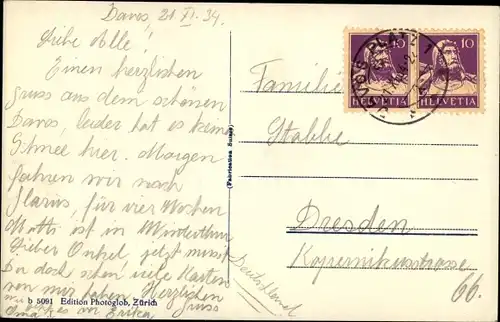 Davos, 21. XI. 34.
Liebe Alle!
Einen herzlichen
gruss aus dem schönen
Davos, leider hat es keine
Schnee hier. Morgen
fahren wir nach
Glarus, für vier Wochen
Motti ist in Winterthur
Lieber Onkel, jetzt musst
Du doch schon viele Karten
von mir haben. Herzlichen
Gruss
Erika.
b 5091 Edition Photoglob, Zürich
(Fabrication Suisse)
10 10
HELVETIA HELVETIA
PLATZ
Familie
Stabbe
Dresden
Kopernikusstrasse
66.
Deutschland